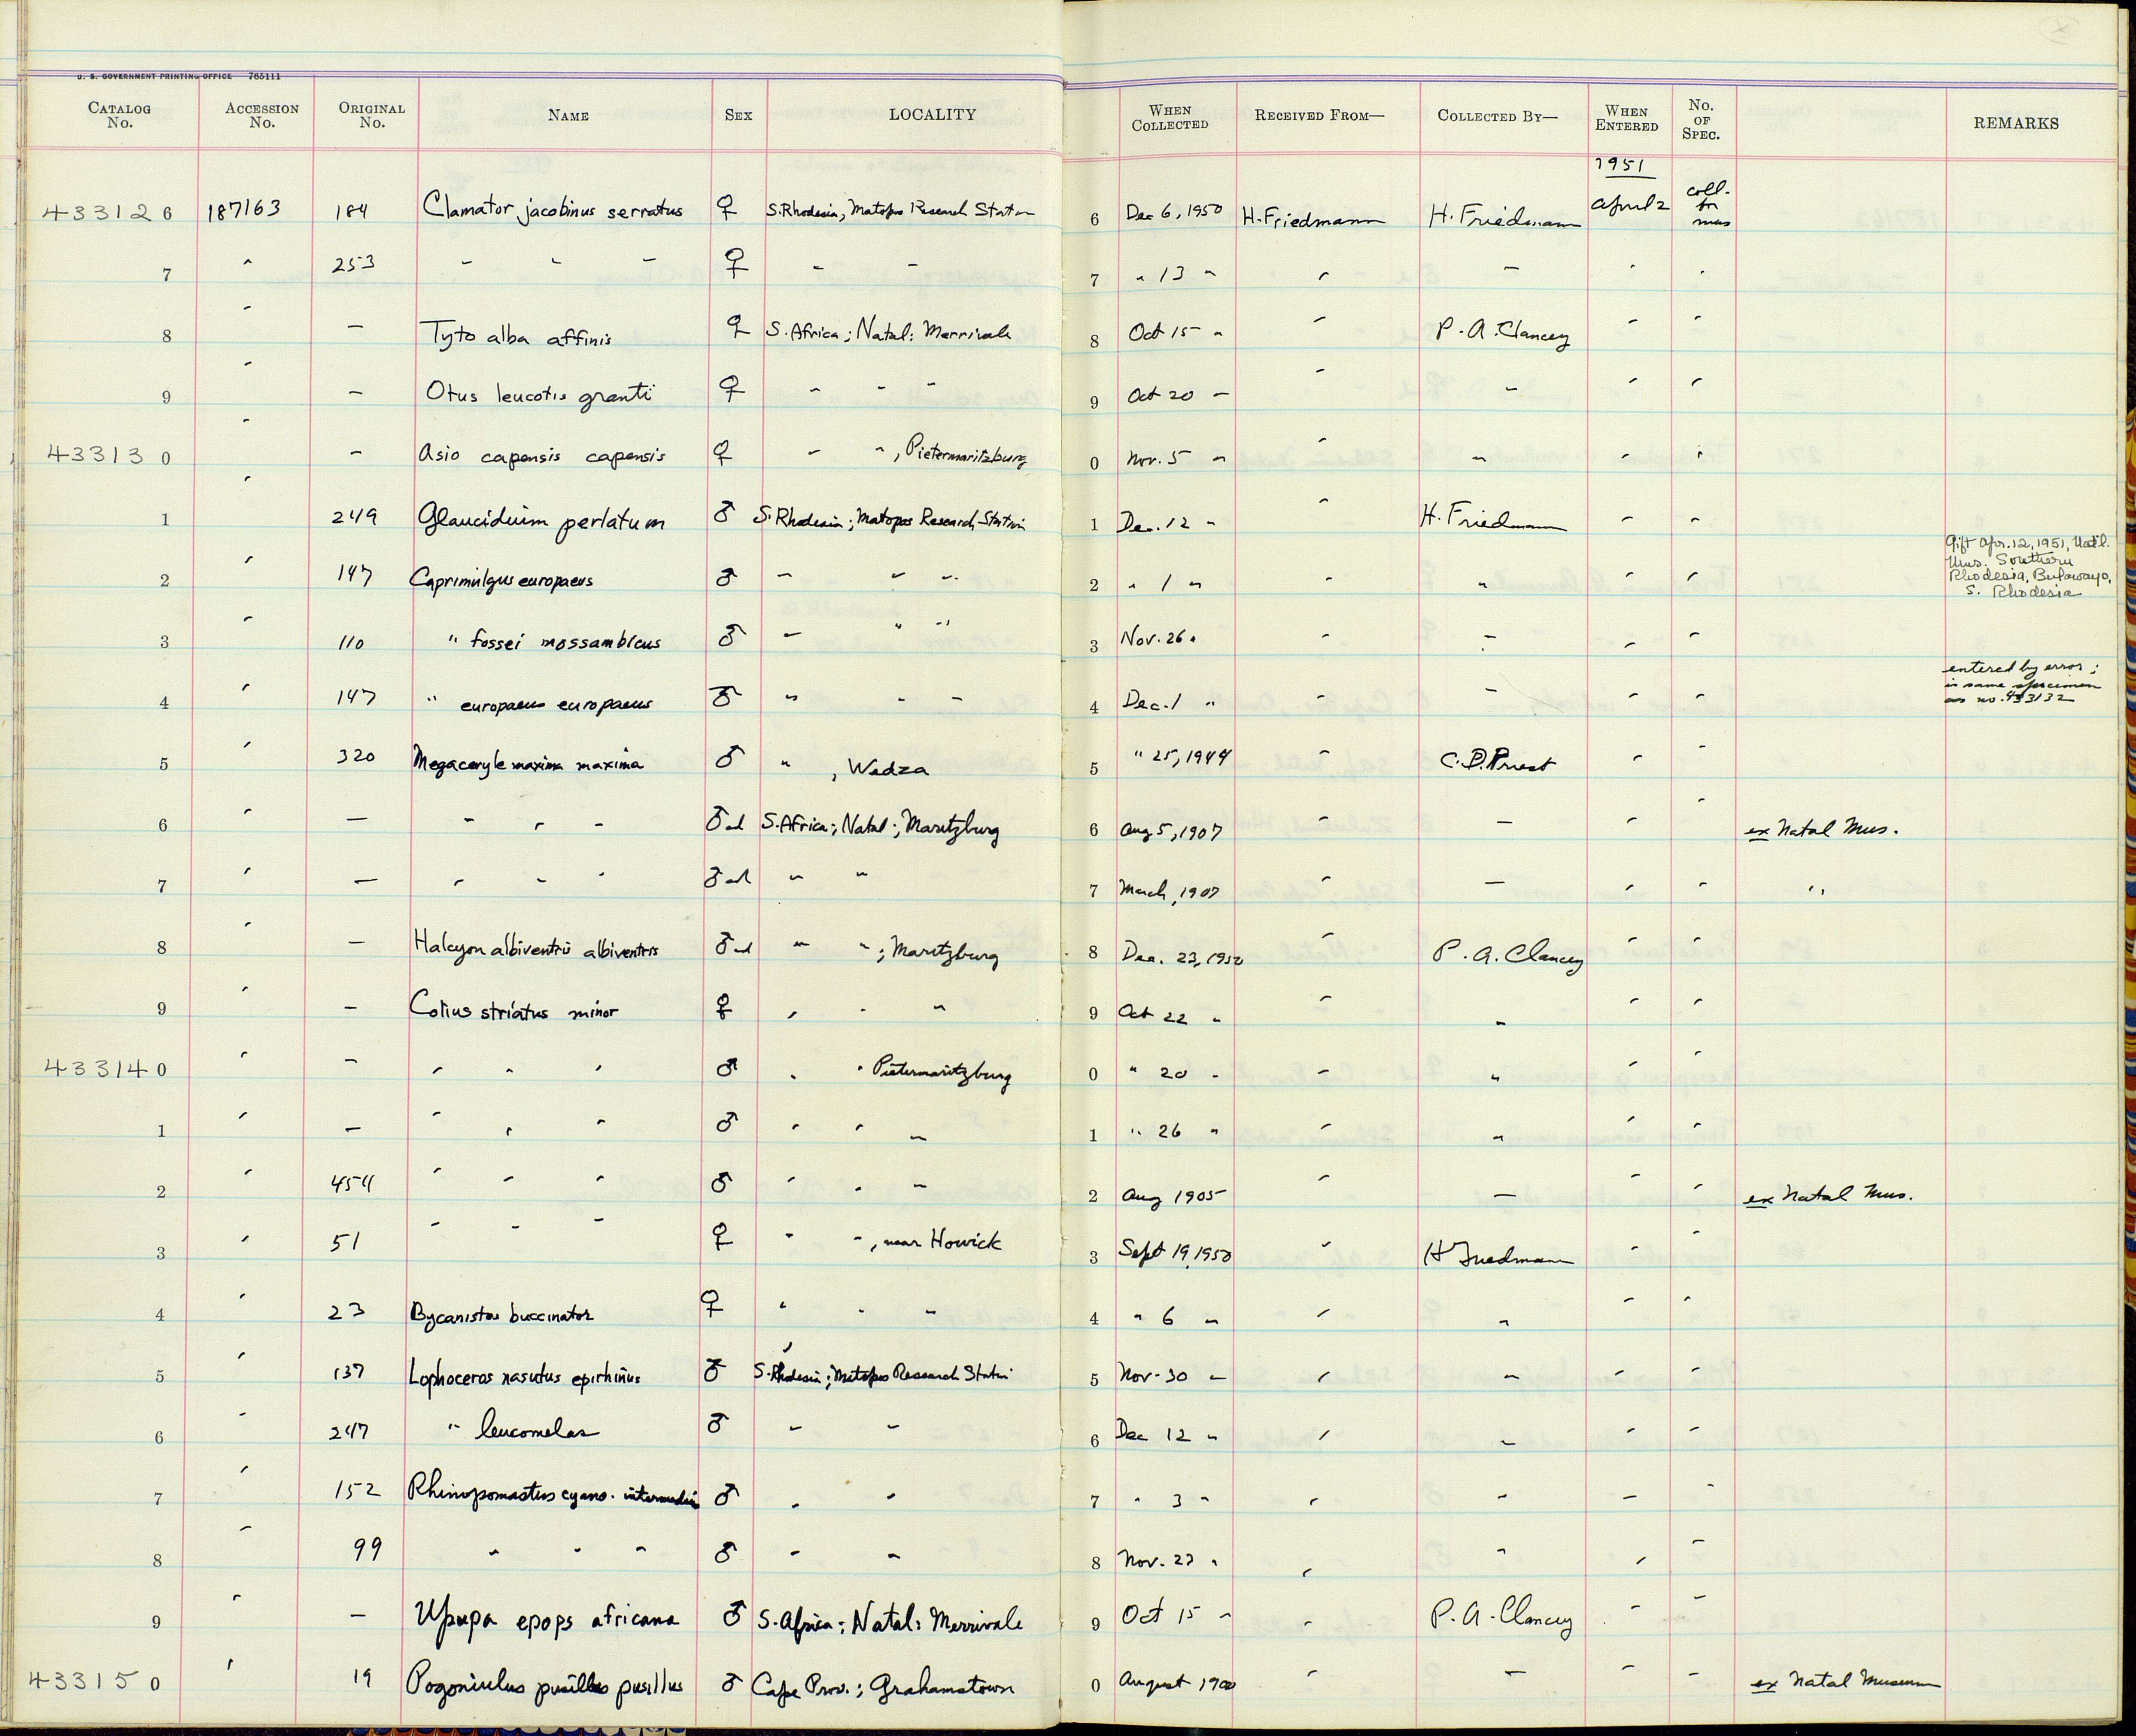 U. S. GOVERNMENT PRINTING OFFICE 765111
CATALOG No. ACCESSION No. ORIGINAL No. NAME SEX LOCALITY WHEN COLLECTED RECEIVED FROM— COLLECTED BY— WHEN ENTERED No. OF SPEC. REMARKS
1951
433126 187163 184 Clamator jacobinus serratus ♀ S. Rhodesia, Matopos Research Station 6 Dec 6, 1950 H. Friedmann H. Friedmann April 2 coll. for mus
7 " 253 " " " ♀ " " 7 " 13 " " " " "
8 " — Tyto alba affinis ♀ S. Africa; Natal: Merrivale 8 Oct 15 " " P. A. Clancey " "
9 " — Otus leucotis granti ♀ " " " 9 Oct 20 " " " " "
433130 " — Asio capensis capensis ♀ " ", Pietermaritzburg 0 Nov. 5 " " " " "
1 " 249 Glaucidium perlatum ♂ S. Rhodesia; Matopos Research Station 1 Dec. 12 " " H. Friedmann " "
2 " 147 Caprimulgus europaeus ♂ " " " 2 " 1 " " " " " Gift Apr. 12, 1951, Natl. Mus. Southern Rhodesia, Bulawayo, S. Rhodesia
3 " 110 " fossei mossambicus ♂ " " " 3 Nov. 26 " " " " "
4 " 147 " europaeus europaeus ♂ " " " 4 Dec. 1 " " " " " entered by error; is same specimen as no. 433132
5 " 320 Megaceryle maxima maxima ♂ " , Wedza 5 " 25, 1944 " C. D. Priest " "
6 " — " " " ♂ad S. Africa; Natal; Maritzburg 6 Aug 5, 1907 " — " " ex Natal Mus.
7 " — " " " ♂ad " " 7 March, 1907 " — " " "
8 " — Halcyon albiventris albiventris ♂ad " " ; Maritzburg 8 Dec. 23, 1950 " P. A. Clancey " "
9 " — Colius striatus minor ♀ " " " 9 Oct 22 " " " " "
433140 " — " " " ♂ " " Pietermaritzburg 0 " 20 " " " " "
1 " — " " " ♂ " " " 1 " 26 " " " " "
2 " 454 " " " ♂ " " " 2 Aug 1905 " — " " ex Natal Mus.
3 " 51 " " " ♀ " ", near Howick 3 Sept 19, 1950 " H Friedmann " "
4 " 23 Bycanistes buccinator ♀ " " " 4 " 6 " " " " "
5 " 137 Lophoceros nasutus epirhinus ♂ S. Rhodesia; Matopos Research Station 5 Nov. 30 " " " " "
6 " 247 " leucomelas ♂ " " 6 Dec 12 " " " " "
7 " 152 Rhinopomastus cyano. intermedius ♂ " " 7 " 3 " " " " "
8 " 99 " " " ♂ " " 8 Nov. 23 " " " " "
9 " — Upupa epops africana ♂ S. Africa; Natal: Merrivale 9 Oct 15 " " P. A. Clancey " "
433150 " 19 Pogoniulus pusillus pusillus ♂ Cape Prov.; Grahamstown 0 August 1900 " — " " ex Natal Museum